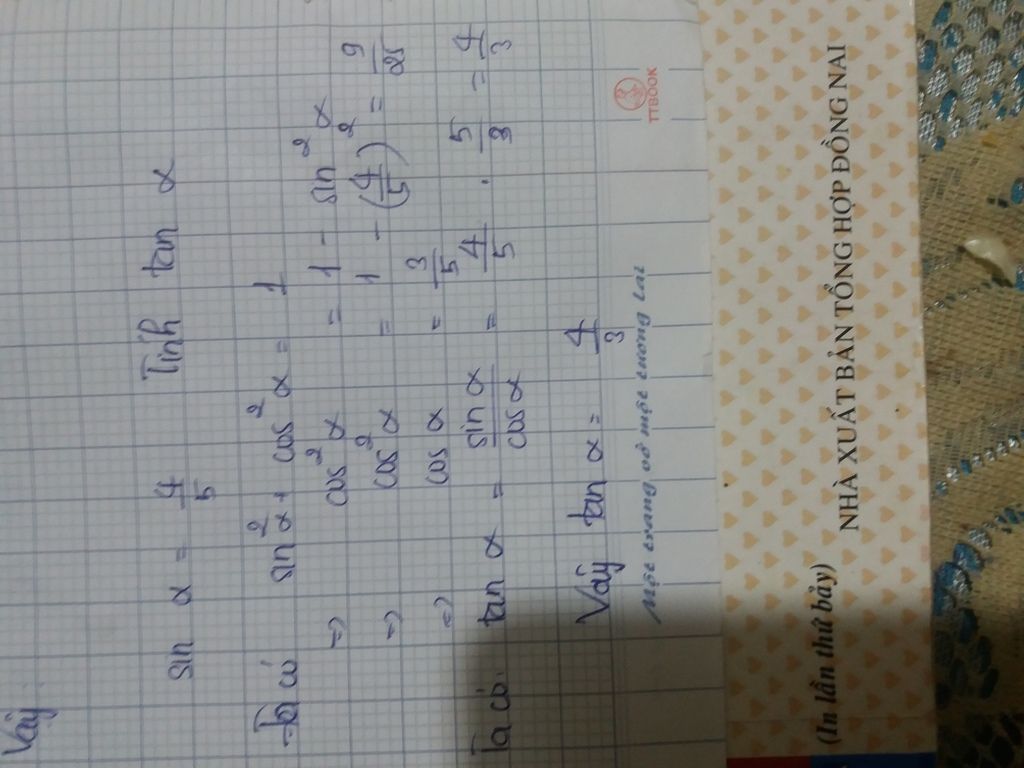 Vậy
sin α = 4/5 Tính tan α
Ta có sin² α + cos² α = 1
=> cos² α = 1 - sin² α
=> cos² α = 1 - (4/5)² = 9/25
=> cos α = 3/5
Ta có. tan α = sin α/cos α = 4/5 . 5/3 = 4/3
Vậy tan α = 4/3
Một trang vở một tương lai
TTBOOK
(In lần thứ bảy)
NHÀ XUẤT BẢN TỔNG HỢP ĐỒNG NAI